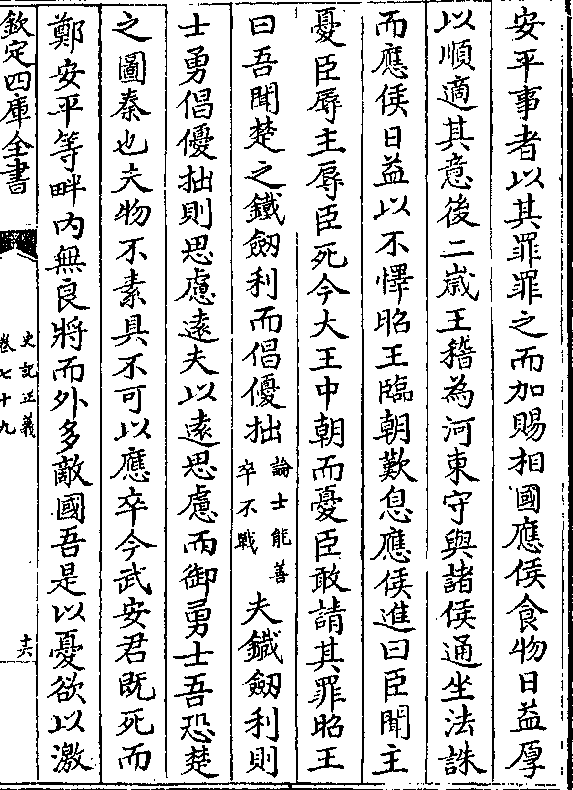 安平事者以其罪罪之而加賜相國應侯食物日益厚
以順適其意後二歲王稽為河東守與諸侯通坐法誅
而應侯日益以不懌昭王臨朝歎息應侯進曰臣聞主
憂臣辱主辱臣死今大王中朝而憂臣敢請其罪昭王
曰吾聞楚之鐵劒利而倡優拙論士能善卒不戰夫鐵劒利則
士勇倡優拙則思慮遠夫以遠思慮而御勇士吾恐楚
之圖秦也夫物不素具不可以應卒今武安君既死而
鄭安平等畔内無良將而外多敵國吾是以憂欲以激
欽定四庫全書
史記正義
卷七十九
十六